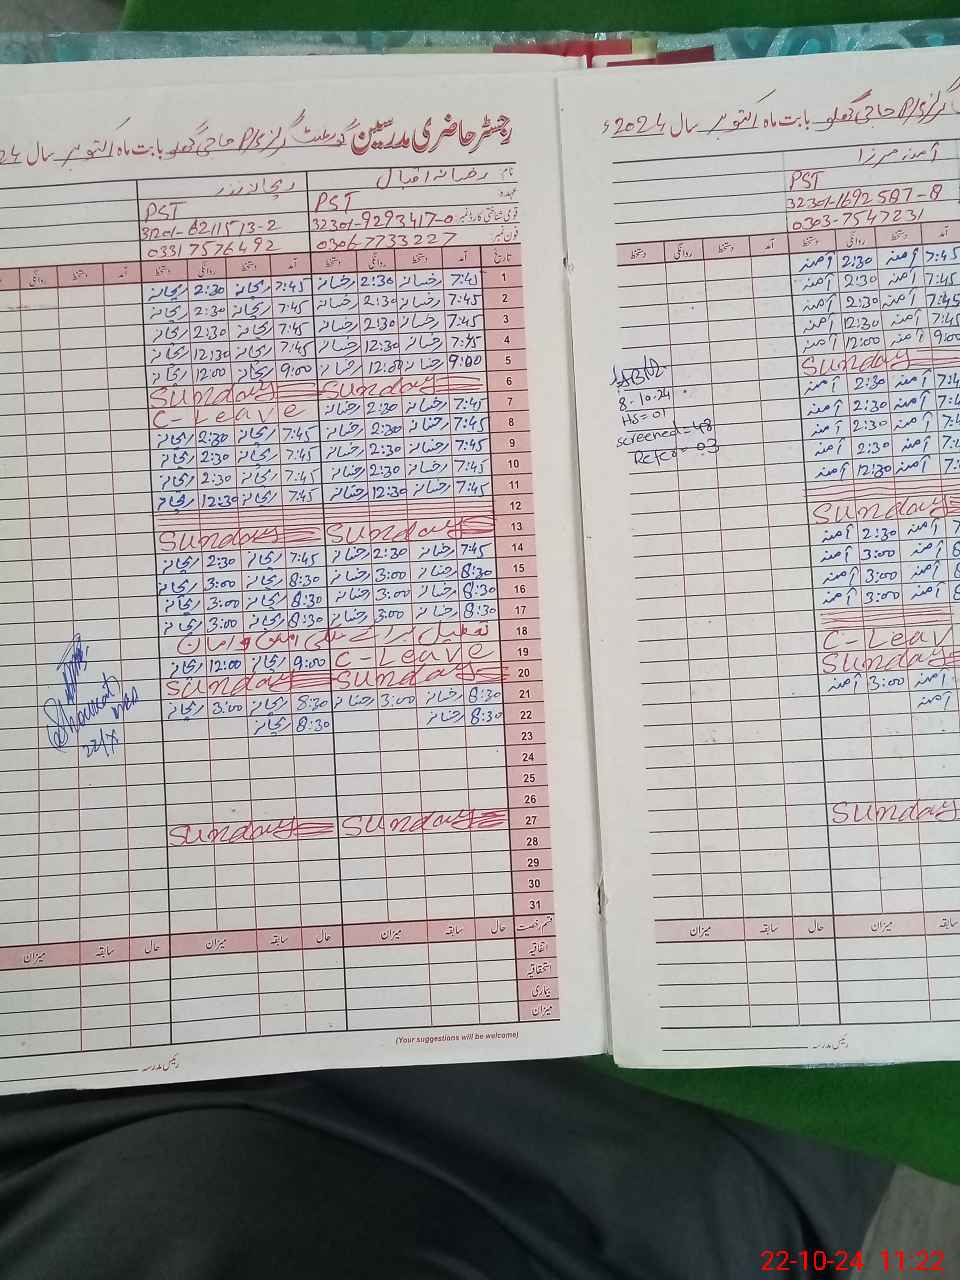 رجسٹر حاضری مدرسین گورنمنٹ گرلز P/S حاجی گھلو بابت ماہ اکتوبر سال 24
نام رخسانہ اقبال
عہدہ PST PST
قومی شناختی کارڈ نمبر 32301-9293417-0
فون نمبر 0306-7733227 03317576492
تاریخ آمد دستخط روانگی دستخط آمد دستخط روانگی دستخط آمد
1 7:45 رخسانہ 2:30 رخسانہ 7:45 ریحانہ 2:30 ریحانہ
2 7:45 رخسانہ 2:30 رخسانہ 7:45 ریحانہ 2:30 ریحانہ
3 7:45 رخسانہ 2:30 رخسانہ 7:45 ریحانہ 2:30 ریحانہ
4 7:45 رخسانہ 12:30 رخسانہ 7:45 ریحانہ 12:30 ریحانہ
5 9:00 رخسانہ 12:00 رخسانہ 9:00 ریحانہ 12:00 ریحانہ
6 Sunday Sunday
7 7:45 رخسانہ 2:30 رخسانہ C-Leave
8 7:45 رخسانہ 2:30 رخسانہ 7:45 ریحانہ 2:30 ریحانہ
9 7:45 رخسانہ 2:30 رخسانہ 7:45 ریحانہ 2:30 ریحانہ
10 7:45 رخسانہ 2:30 رخسانہ 7:45 ریحانہ 2:30 ریحانہ
11 7:45 رخسانہ 12:30 رخسانہ 7:45 ریحانہ 12:30 ریحانہ
12
13 Sunday Sunday
14 7:45 رخسانہ 2:30 رخسانہ 7:45 ریحانہ 2:30 ریحانہ
15 8:30 رخسانہ 3:00 رخسانہ 8:30 ریحانہ 3:00 ریحانہ
16 8:30 رخسانہ 3:00 رخسانہ 8:30 ریحانہ 3:00 ریحانہ
17 8:30 رخسانہ 3:00 رخسانہ 8:30 ریحانہ 3:00 ریحانہ
18 تعطیل برائے
19 C-Leave 9:00 ریحانہ 12:00 ریحانہ
20 Sunday Sunday
21 8:30 رخسانہ 3:00 رخسانہ 8:30 ریحانہ 3:00 ریحانہ
22 8:30 رخسانہ 8:30 ریحانہ
23
24
25
26
27 Sunday Sunday
28
29
30
31
قسم رخصت حال سابقہ میزان حال سابقہ میزان حال سابقہ میزان
اتفاقیہ
استحقاقیہ
بیماری
میزان
(Your suggestions will be welcome)
رئیس مدرسہ
Shaukat
22/X
گرلز P/S حاجی گھلو بابت ماہ اکتوبر سال 2024ء
آمنہ مرزا
PST
0303-7547231
آمد دستخط روانگی دستخط دستخط روانگی دستخط
7:45 آمنہ 2:30 آمنہ
7:45 آمنہ 2:30 آمنہ
7:45 آمنہ 2:30 آمنہ
آمنہ 12:30 آمنہ
9:00 آمنہ 12:00 آمنہ
Sunday
آمنہ 2:30 آمنہ
آمنہ 2:30 آمنہ
آمنہ 2:30 آمنہ
آمنہ 2:30 آمنہ
آمنہ 12:30 آمنہ
Sunday
آمنہ 2:30 آمنہ
آمنہ 3:00 آمنہ
آمنہ 3:00 آمنہ
آمنہ 3:00 آمنہ
C-Leav
Sunday
آمنہ 3:00 آمنہ
آمنہ
Sunday
8-10-24
HS=01
screened=48
Refer=03
سابقہ میزان حال سابقہ میزان
رئیس مدرسہ
22-10-24 11:22